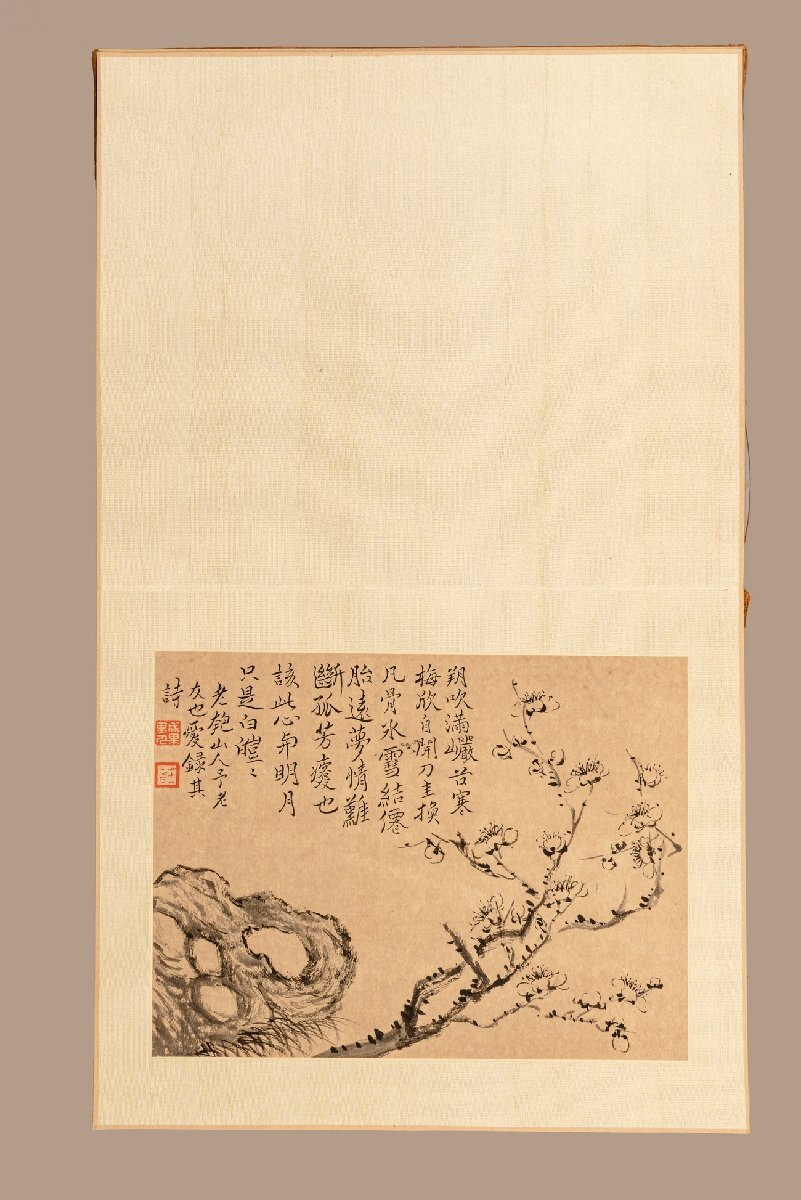 朔吹滿巗苦寒
梅欣自開刀圭換
凡骨冰雪結僊
胎遠夢情難
斷孤芳瘦也
該此心弟明月
只是白皚〻
老匏山人予老
友也愛錄其
詩